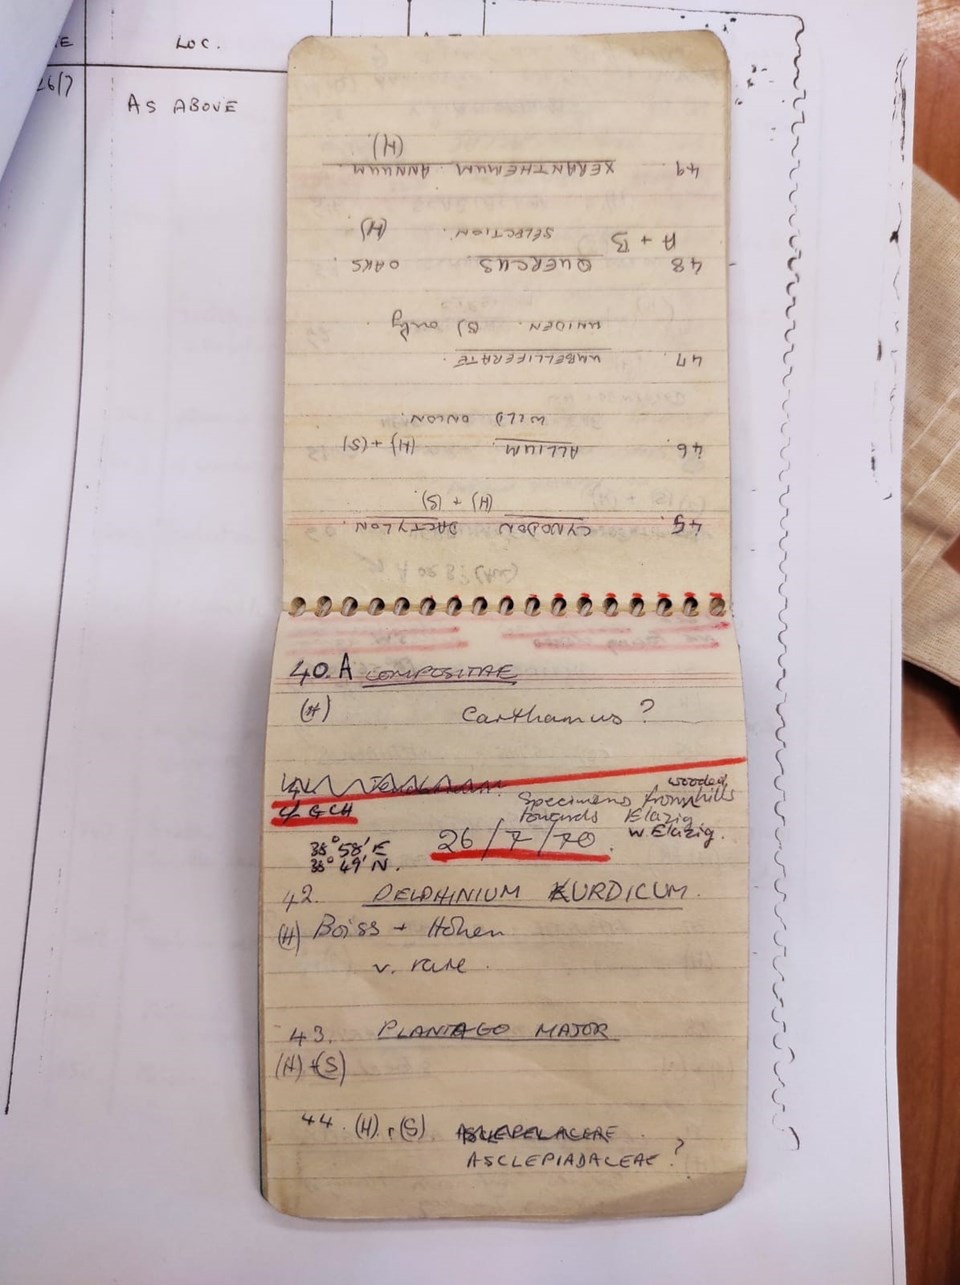 LOC.
26/7
AS ABOVE
40. A COMPOSITAE
(H) Carthamus ?
GCH
wooded
Specimens from hills
towards Elazig
W. Elazig.
26/7/70.
38° 58' E
38° 49' N.
42. DELPHINIUM KURDICUM.
(H) Boiss + Hohen
v. rare.
43. PLANTAGO MAJOR
(H) + (S)
44. (H) + (S)
ASCLEPIADACEAE ?
45. CYNODON DACTYLON.
(H) + (S)
46. ALLIUM (H) + (S)
WILD ONION.
47. UMBELLIFERATE.
UNIDEN. (S) only
48 QUERCUS. OAKS.
A + B SELECTION. (H)
49. XERANTHEMUM. ANNUUM.
(H)